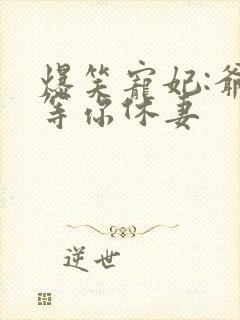 爆笑寵妃:爺
等你休妻
逆世